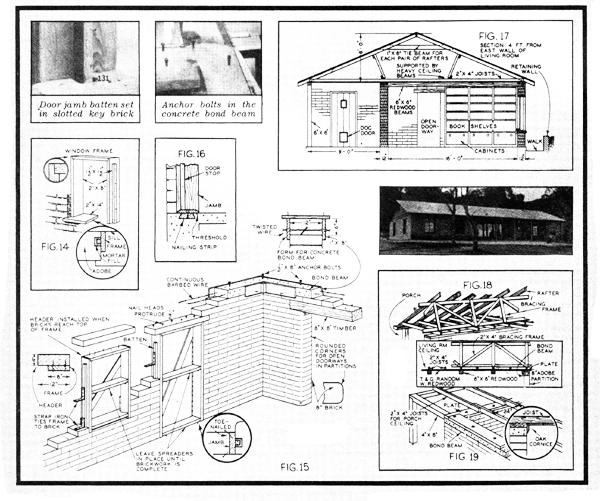 131
Door jamb batten set
in slotted key brick
Anchor bolts in the
concrete bond beam
FIG. 17
SECTION 4 FT. FROM
EAST WALL OF
LIVING ROOM
1" X 8" TIE BEAM FOR
EACH PAIR OF RAFTERS
SUPPORTED BY
HEAVY CEILING
BEAMS
2" X 4" JOISTS
RETAINING
WALL
6" X 8"
REDWOOD
BEAMS
6" X 8"
DOG
DOOR
OPEN
DOOR-
WAY
BOOK SHELVES
CABINETS
WALK
WINDOW FRAME
2" X 8"
2" X 4"
FIG. 14
FRAME
MORTAR
FILL
ADOBE
FIG. 16
DOOR
STOP
JAMB
THRESHOLD
NAILING STRIP
TWISTED
WIRE
FORM FOR CONCRETE
BOND BEAM
ANCHOR BOLTS
BOND BEAM
CONTINUOUS
BARBED WIRE
NAIL HEADS
PROTRUDE
HEADER INSTALLED WHEN
BRICKS REACH TOP
OF FRAME
BATTEN
8" X 8" TIMBER
ROUNDED
CORNERS
FOR OPEN
DOORWAYS
IN PARTITIONS
8" BRICK
8"
12"
FRAME
HEADER
STRAP IRON
TIES FRAME
TO BRICK
LEAVE SPREADERS
IN PLACE UNTIL
BRICKWORK IS
COMPLETE
TOE-
NAILED
JAMB
FIG. 15
FIG. 18
PORCH
RAFTER
BRACING
FRAME
2" X 4" BRACING FRAME
LIVING RM
CEILING
2" X 4"
JOISTS
BOND
BEAM
PLATE
8" ADOBE
PARTITION
T & G RANDOM
W. REDWOOD
6" X 8" REDWOOD
PLATE
2" X 4" JOISTS
FOR PORCH
CEILING
4" X 8"
BOND BEAM
24"
JOIST
OAK
CORNICE
FIG 19